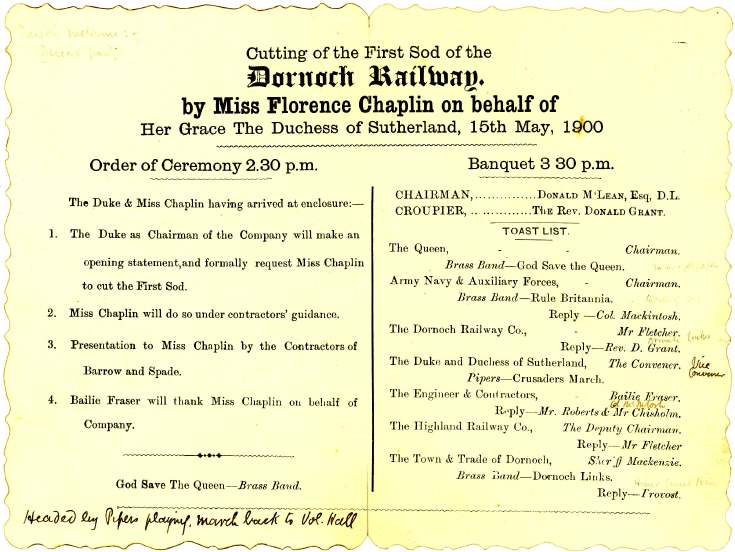 Cutting of the First Sod of the
Dornoch Railway.
by Miss Florence Chaplin on behalf of
Her Grace The Duchess of Sutherland, 15th May, 1900
Order of Ceremony 2.30 p.m.
The Duke & Miss Chaplin having arrived at enclosure:—
1. The Duke as Chairman of the Company will make an
opening statement, and formally request Miss Chaplin
to cut the First Sod.
2. Miss Chaplin will do so under contractors' guidance.
3. Presentation to Miss Chaplin by the Contractors of
Barrow and Spade.
4. Bailie Fraser will thank Miss Chaplin on behalf of
Company.
God Save The Queen—Brass Band.
Headed by Pipers playing, march back to Vol. Hall
Banquet 3 30 p.m.
CHAIRMAN,...............DONALD M'LEAN, Esq, D.L.
CROUPIER, ................THE REV. DONALD GRANT.
TOAST LIST.
The Queen, - - Chairman.
Brass Band—God Save the Queen.
Army Navy & Auxiliary Forces, - Chairman.
Brass Band—Rule Britannia.
Reply —Col. Mackintosh.
The Dornoch Railway Co., - Mr Fletcher.
Reply—Rev. D. Grant.
The Duke and Duchess of Sutherland, The Convener. Vice Convener
Pipers—Crusaders March.
The Engineer & Contractors, - Bailie Fraser.
Reply—Mr. Roberts & Mr Chisholm.
The Highland Railway Co., The Deputy Chairman.
Reply—Mr Fletcher
The Town & Trade of Dornoch, Sheriff Mackenzie.
Brass Band—Dornoch Links.
Reply—Provost.